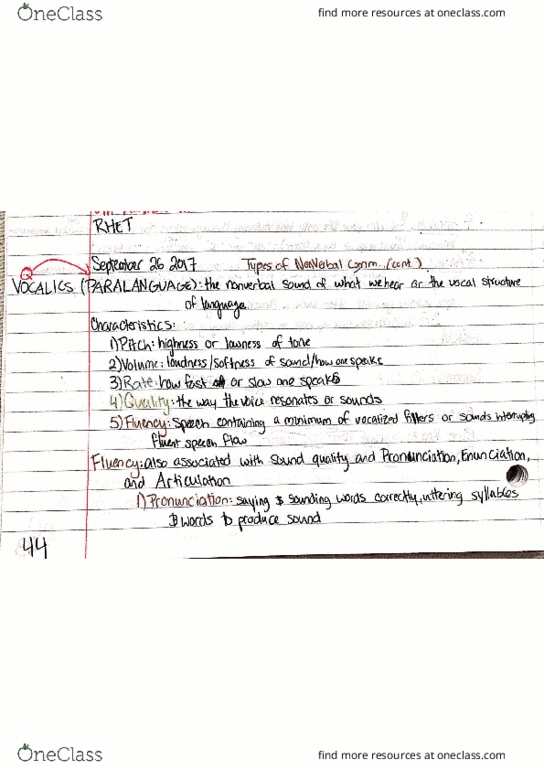 OneClass
find more resources at oneclass.com
RHET
September 26 2017 Types of NonVerbal Comm. (cont.)
VOCALICS (PARALANGUAGE): the nonverbal sound of what we hear or the vocal structure
of language
Characteristics:
1) Pitch: highness or lowness of tone
2) Volume: loudness/softness of sound/how one speaks
3) Rate: how fast or slow one speaks
4) Quality: the way the voice resonates or sounds
5) Fluency: speech containing a minimum of vocalized fillers or sounds interrupting
fluent speech flow
Fluency: also associated with sound quality and Pronunciation, Enunciation,
and Articulation
1) Pronunciation: saying & sounding words correctly, uttering syllables
& words to produce sound
44
OneClass
find more resources at oneclass.com